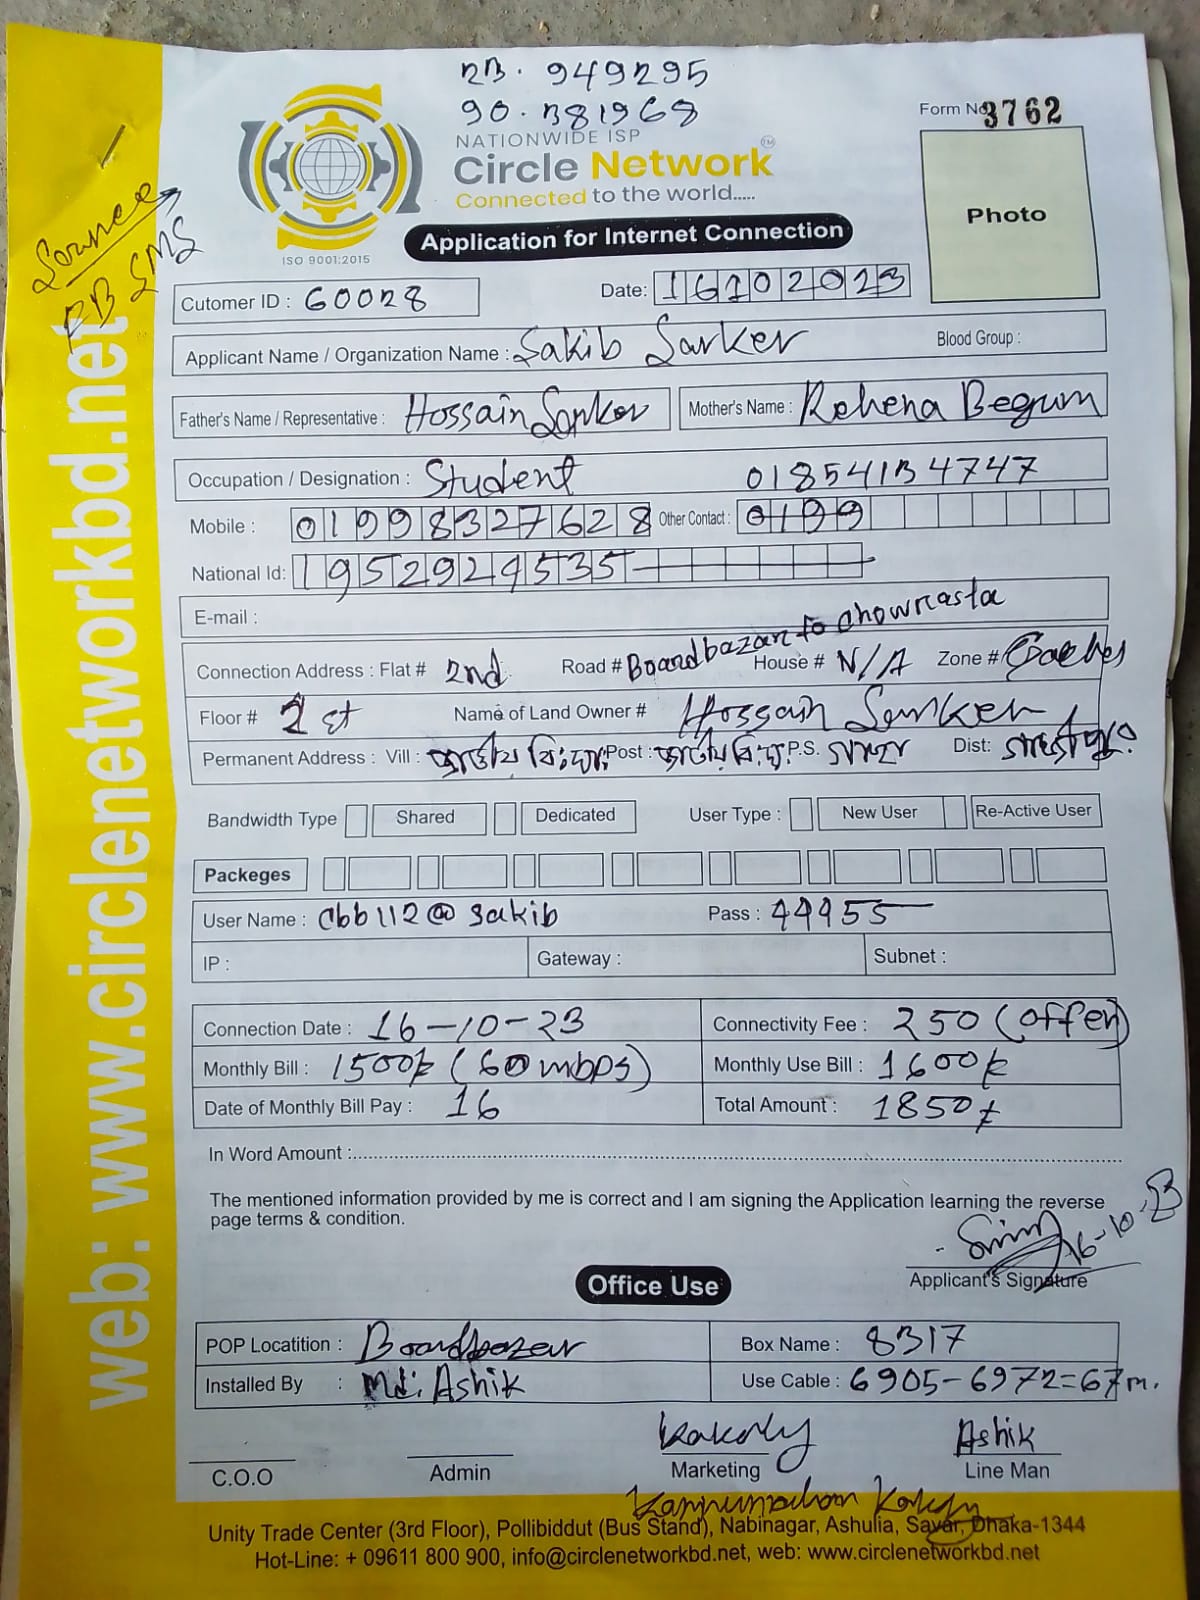 23. 949295
90. 381968
Form No 3762
NATIONWIDE ISP
Circle Network TM
Connected to the world.....
ISO 9001:2015
Application for Internet Connection
Photo
Source
SMS
web: www.circlenetworkbd.net
Cutomer ID : 60028
Date: 16102023
Applicant Name / Organization Name : Sakib Sarker
Blood Group :
Father's Name / Representative : Hossain Sarker
Mother's Name : Rehena Begum
Occupation / Designation : Student 01854134747
Mobile : 01998327628 Other Contact : 0199
National Id: 1952924535
E-mail :
Connection Address : Flat # 2nd Road # Boardbazar to chowrasta House # N/A Zone #
Floor # 1st Name of Land Owner # Hossain Sarker
Permanent Address : Vill : Post : P.S. Dist:
Bandwidth Type Shared Dedicated User Type : New User Re-Active User
Packeges
User Name : cbb112@sakib Pass : 44455
IP : Gateway : Subnet :
Connection Date : 16-10-23 Connectivity Fee : 250 (offer)
Monthly Bill : 1500t (60 mbps) Monthly Use Bill : 1600t
Date of Monthly Bill Pay : 16 Total Amount : 1850t
In Word Amount :
The mentioned information provided by me is correct and I am signing the Application learning the reverse
page terms & condition.
16-10-23
Applicant's Signature
Office Use
POP Locatition : Boardbazar Box Name : 8317
Installed By : Md: Ashik Use Cable : 6905-6972=67m.
Kakoly Ashik
C.O.O Admin Marketing Line Man
Unity Trade Center (3rd Floor), Pollibiddut (Bus Stand), Nabinagar, Ashulia, Savar, Dhaka-1344
Hot-Line: + 09611 800 900, info@circlenetworkbd.net, web: www.circlenetworkbd.net